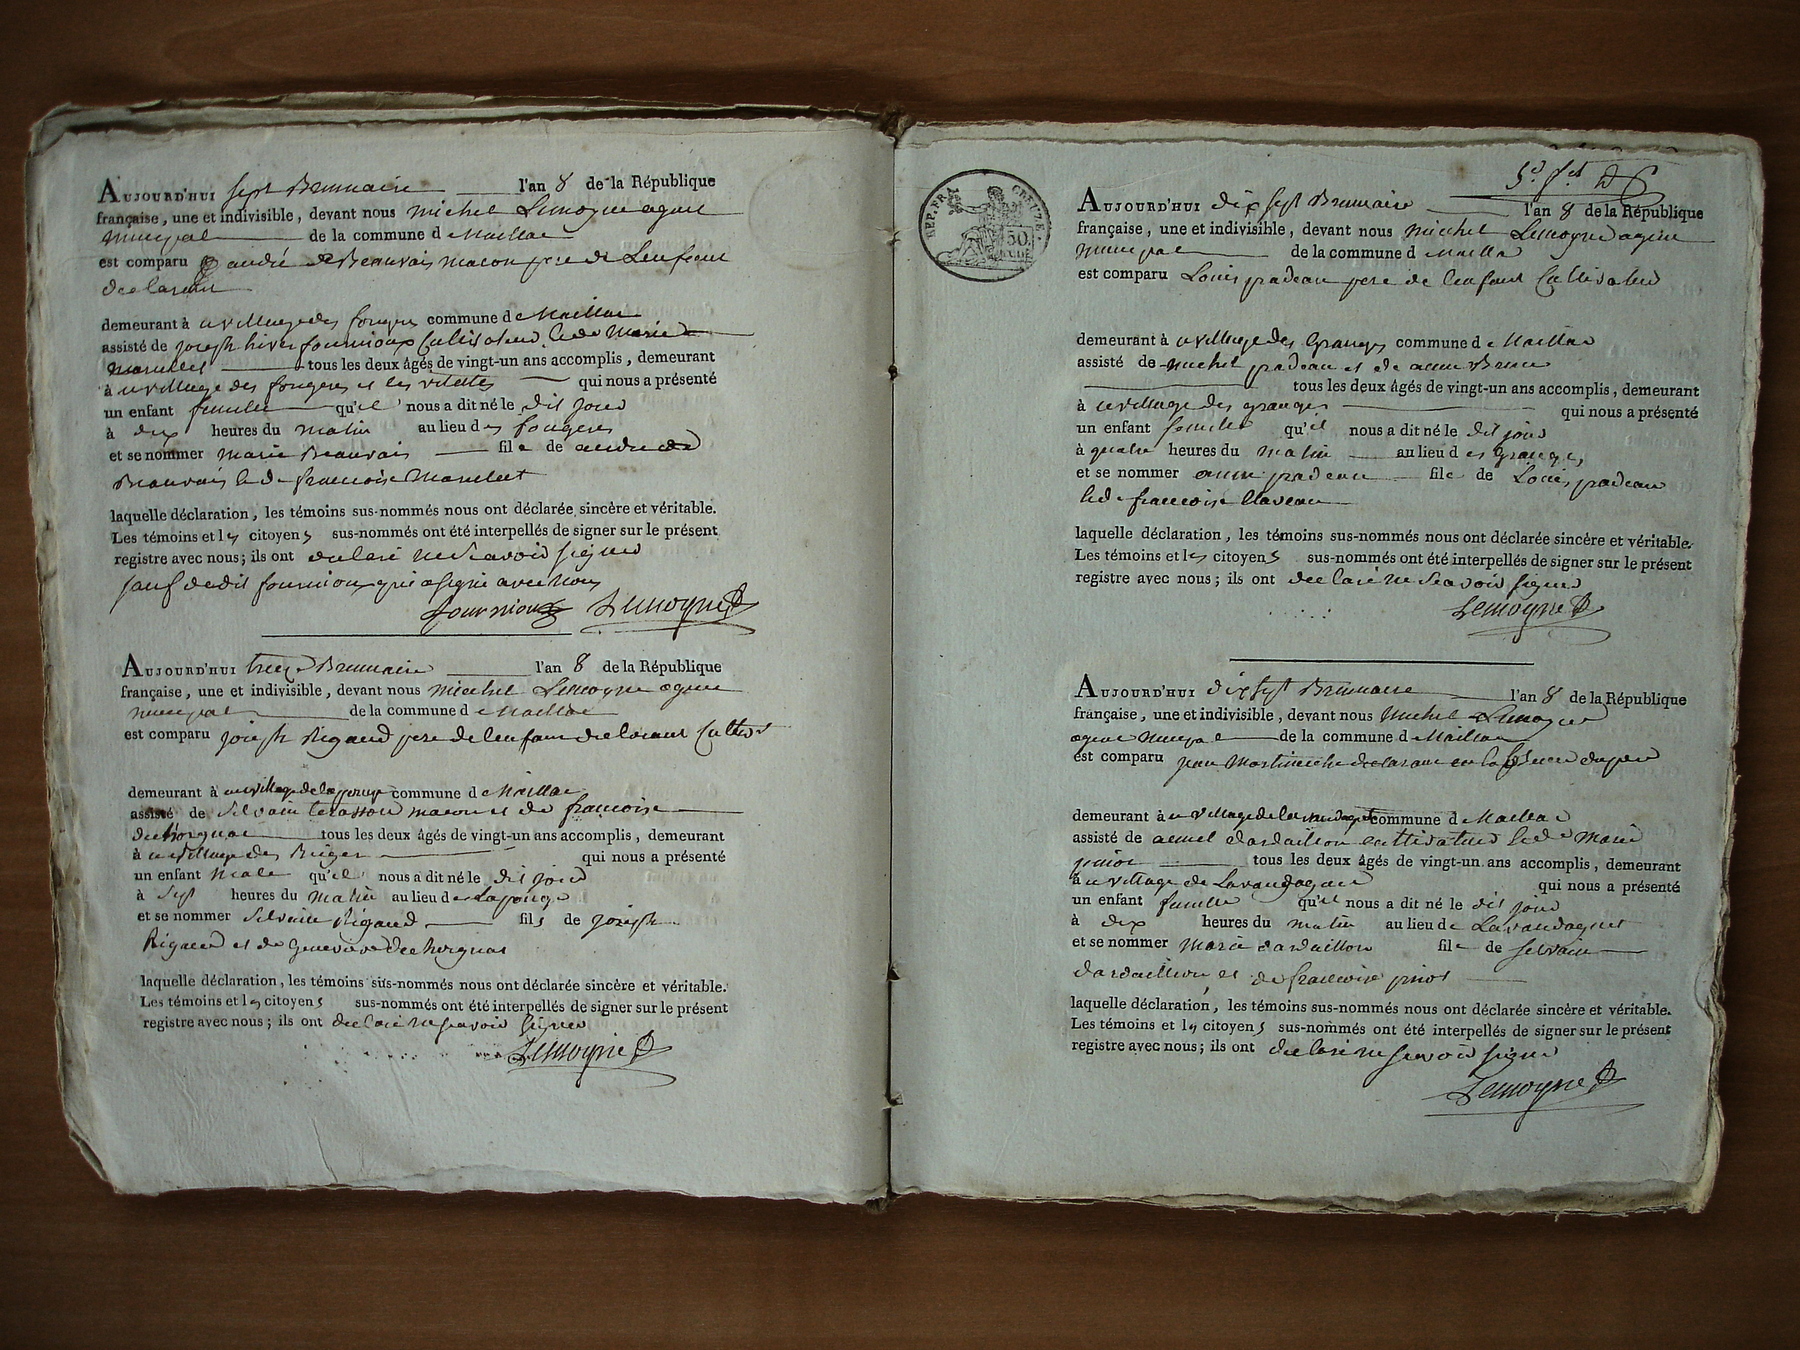 AUJOURD'HUI sept Brumaire l'an 8 de la République
française, une et indivisible, devant nous michel Lemoyne agent
municipal de la commune d e Maillac
est comparu andré de Beauvais macon pere de Lenfant
declarant
demeurant à u village des fougeres commune d e Maillac
assisté de joseph hiver fournioux Cultivateur & de Marie
Manillet tous les deux âgés de vingt-un ans accomplis, demeurant
à u village des fougeres et les vilattes qui nous a présenté
un enfant femelle qu'il nous a dit né le dit jour
à dix heures du matin au lieu d es fougeres
et se nommer Marie Beauvais fil e de andre de
Beauvais & de francoise Manillet
laquelle déclaration, les témoins sus-nommés nous ont déclarée sincère et véritable.
Les témoins et l es citoyen s sus-nommés ont été interpellés de signer sur le présent
registre avec nous; ils ont declaré ne Scavoir signer
sauf dedit fournioux qui a signé avec nous
fournioux Lemoyne
AUJOURD'HUI treize Brumaire l'an 8 de la République
française, une et indivisible, devant nous michel Lemoyne agent
municipal de la commune d e Maillac
est comparu joseph Rigaud pere de lenfant declarant Cultivat
demeurant à u village de laponge commune d e Maillac
assisté de Silvain terasson macon et de francoise
dechorgnac tous les deux âgés de vingt-un ans accomplis, demeurant
à u village des Riges qui nous a présenté
un enfant male qu'il nous a dit né le dit jour
à Sept heures du matin au lieu de Laponge
et se nommer Silvain Rigaud fil s de joseph
Rigaud et de Genevieve dechorgnac
laquelle déclaration, les témoins sus-nommés nous ont déclarée sincère et véritable.
Les témoins et l es citoyen s sus-nommés ont été interpellés de signer sur le présent
registre avec nous; ils ont declaré ne scavoir signer
Lemoyne
REP. FRA CREUZE.
50.
AUJOURD'HUI dix sept Brumaire l'an 8 de la République
française, une et indivisible, devant nous michel Lemoyne agent
municipal de la commune d e Maillac
est comparu Louis pradeau pere de lenfant Cultivateur
demeurant à u village des Granges commune d e Maillac
assisté de michel pradeau et de anne
tous les deux âgés de vingt-un ans accomplis, demeurant
à u village des granges qui nous a présenté
un enfant femelle qu'il nous a dit né le dit jour
à quatre heures du matin au lieu d es Granges
et se nommer anne pradeau fil e de Louis pradeau
& de francoise Claveau
laquelle déclaration, les témoins sus-nommés nous ont déclarée sincère et véritable.
Les témoins et l es citoyen s sus-nommés ont été interpellés de signer sur le présent
registre avec nous; ils ont declaré ne Scavoir signer
Lemoyne
AUJOURD'HUI dix sept Brumaire l'an 8 de la République
française, une et indivisible, devant nous Michel Lemoyne
agent municipal de la commune d e Maillac
est comparu jean Martineche declarant en labsence du pere
demeurant à u village de commune d e Maillac
assisté de dardaillon cultivateur & de Marie
piniot tous les deux âgés de vingt-un ans accomplis, demeurant
à u village de Lavaudagout qui nous a présenté
un enfant femelle qu'il nous a dit né le dit jour
à dix heures du matin au lieu de Lavaudagout
et se nommer Marie dardaillon fil e de silvain
dardaillon et de francoise piniot
laquelle déclaration, les témoins sus-nommés nous ont déclarée sincère et véritable.
Les témoins et l es citoyen s sus-nommés ont été interpellés de signer sur le présent
registre avec nous; ils ont declaré ne scavoir signer
Lemoyne